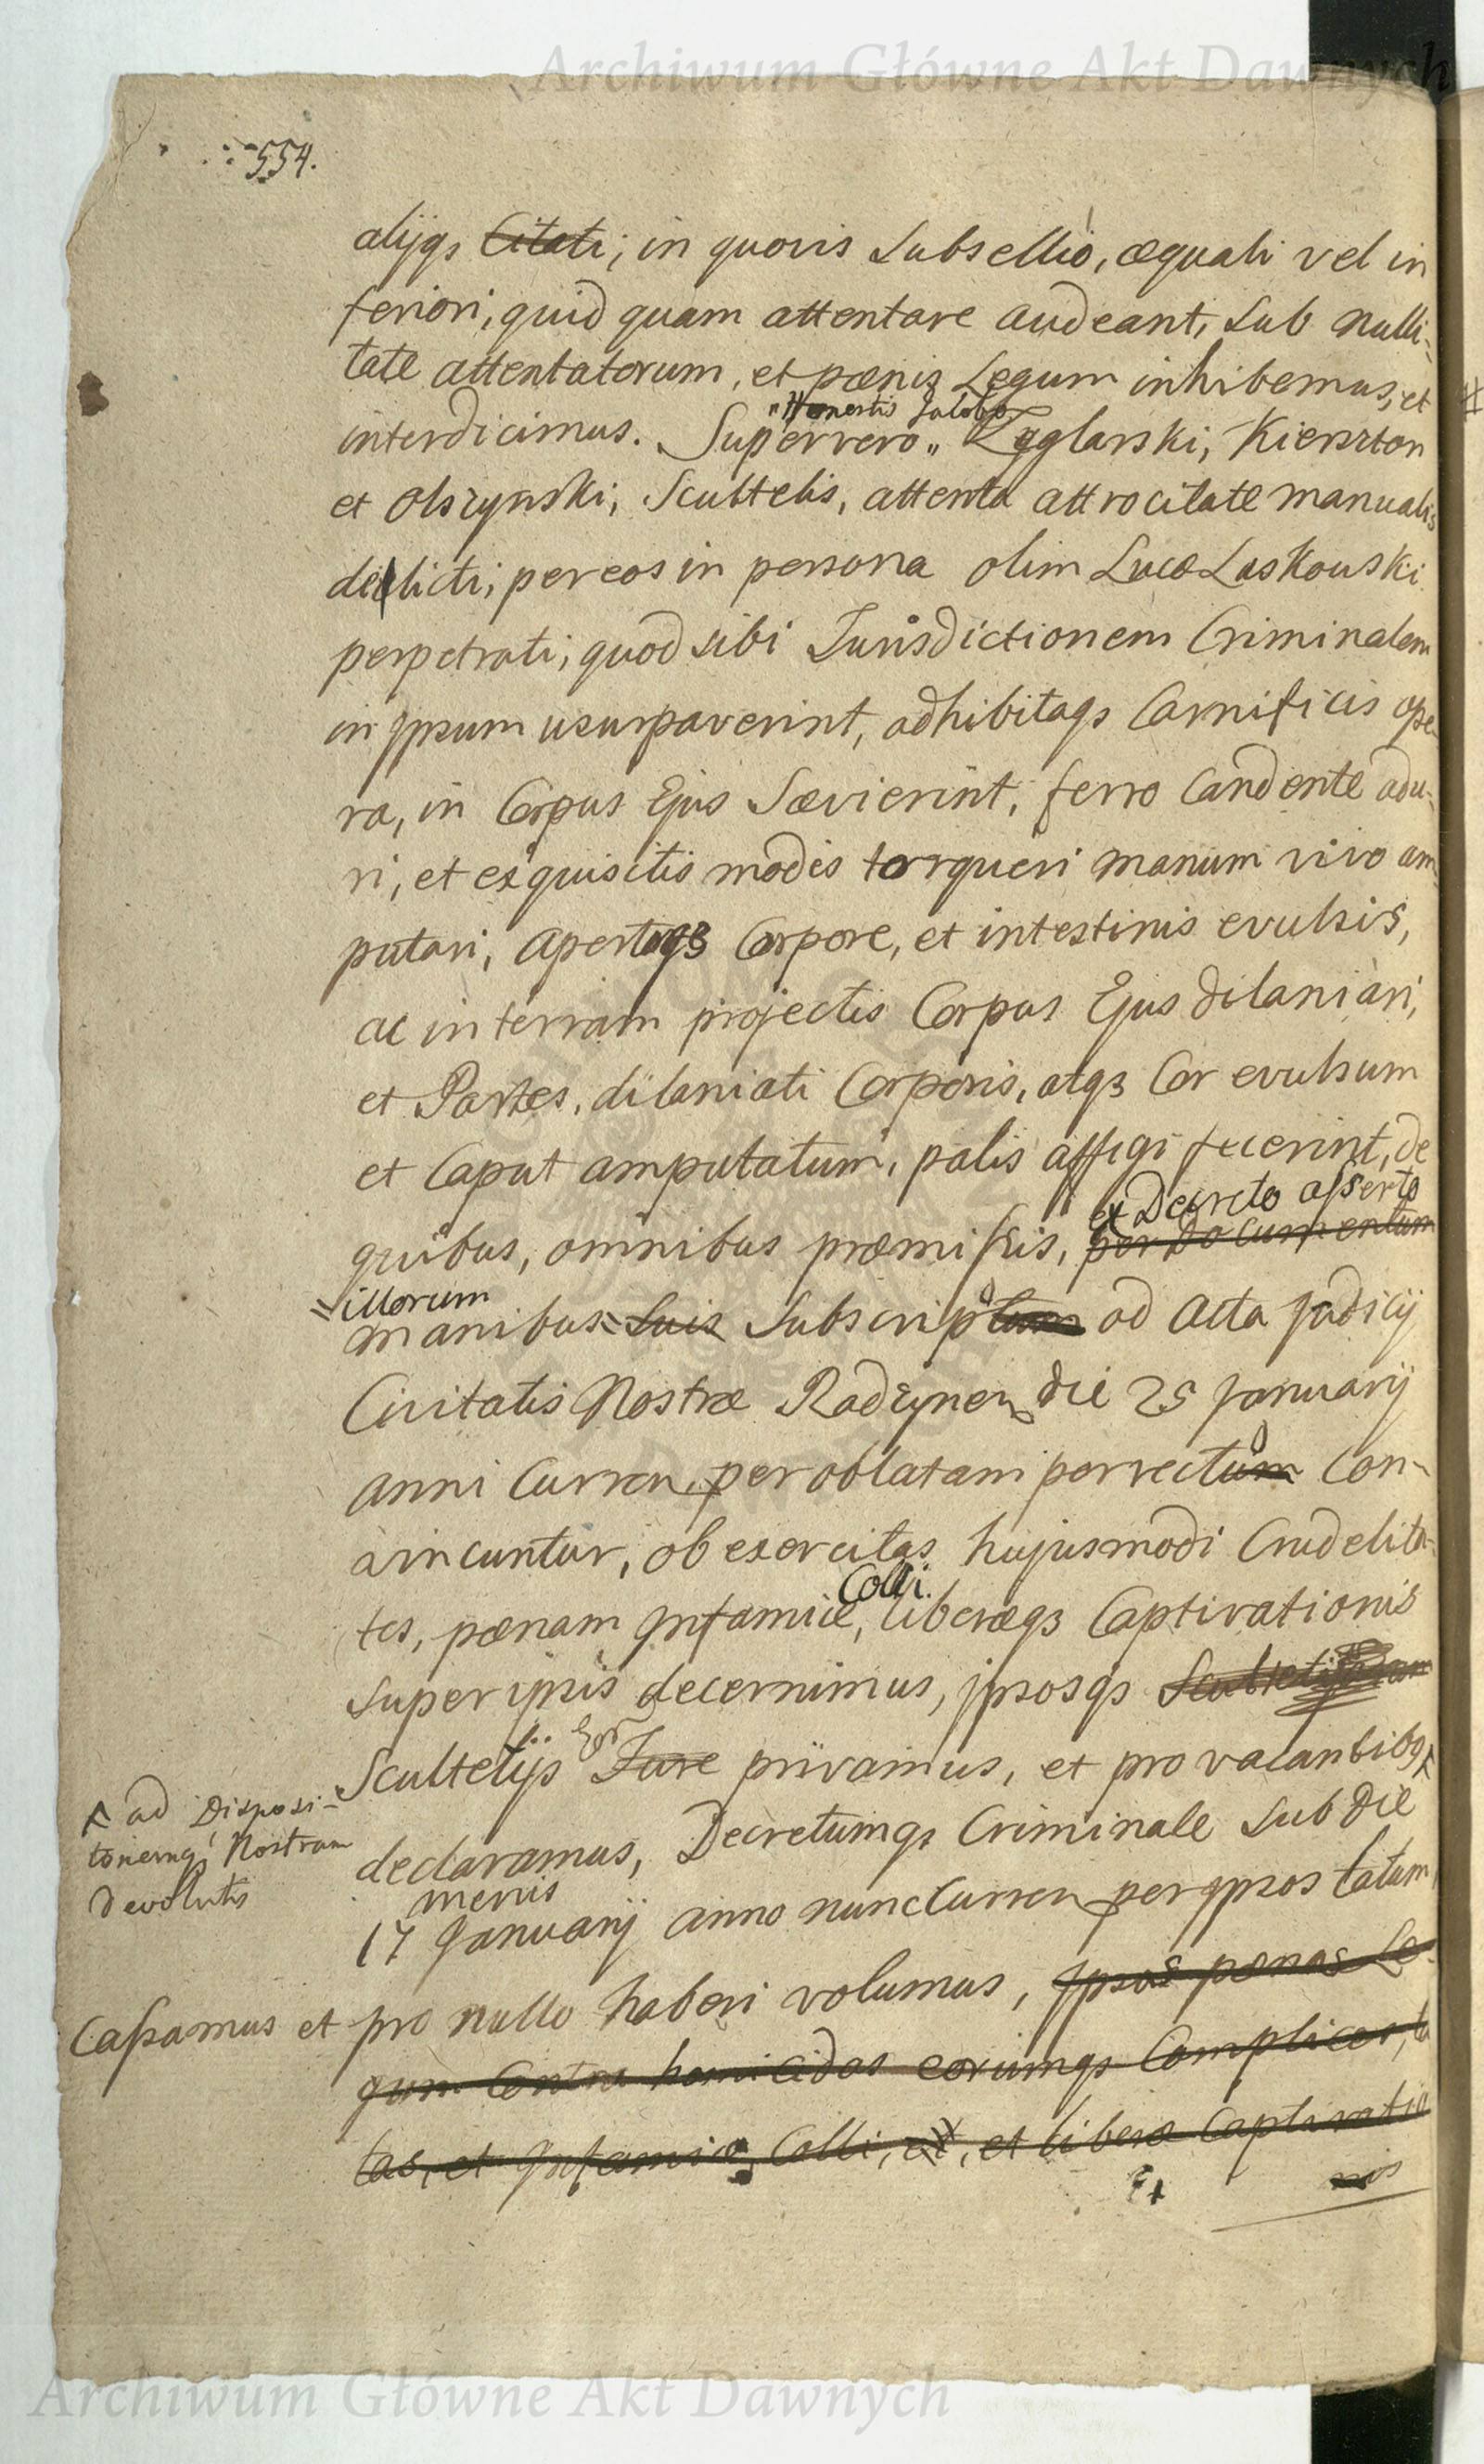 Archiwum Główne Akt Dawnych
554.
alijqs Citati, in quovis Subsellio, æquali vel in
feriori, quid quam attentare audeant, sub nulli-
tate attentatorum, et pœnis Legum inhibemus, et
"Honestis Jacobo
interdicimus. Super vero „ Zęglarski, Kierszton
et Olszynski, Scultetis, attenta attrocitate manualis
delicti, per eos in persona olim Lucæ Laskouski
perpetrati, quod sibi Jurisdictionem Criminalem
in Ipsum usurpaverint, adhibitaqs Carnificis ope-
ra, in Corpus Ejus Sævierint, ferro Candente adu-
ri, et exquisitis modis torqueri manum vivo am-
putari, apertoq3 Corpore, et intestinis evulsis,
ac in terram projectis Corpus Ejus dilaniari,
et Partes, dilaniati Corporis, atq3 Cor evulsum
et Caput amputatum, palis affigi fecerint, de
ex Decreto asserto
quibus, omnibus præmissis, per Documentum
illorum
manibus suis Subscripto ad Acta Judicij
Civitatis Nostræ Radzynen die 25 Januarij
anni Curren per oblatam porrecto Con-
vincuntur, ob exercitas hujusmodi Crudelita-
Colli.
tes, pœnam Infamiæ, liberæq3 Captivationis
super ipsis decernimus, ipsosqs
Scultetijs Jure privamus, et pro vacantibqs
^ ad Disposi-
tionemqs Nostram
devolutis
declaramus, Decretumqs Criminale sub die
mensis
17 Januarij anno nunc Curren per Ipsos latum
Cassamus et pro nullo haberi volumus, Ipsas pœnas Le-
gum Contra homicidas eorumqs Complices, la
tas, et Infamiæ, Colli, et, et liberæ Captivatio
nis
Archiwum Główne Akt Dawnych